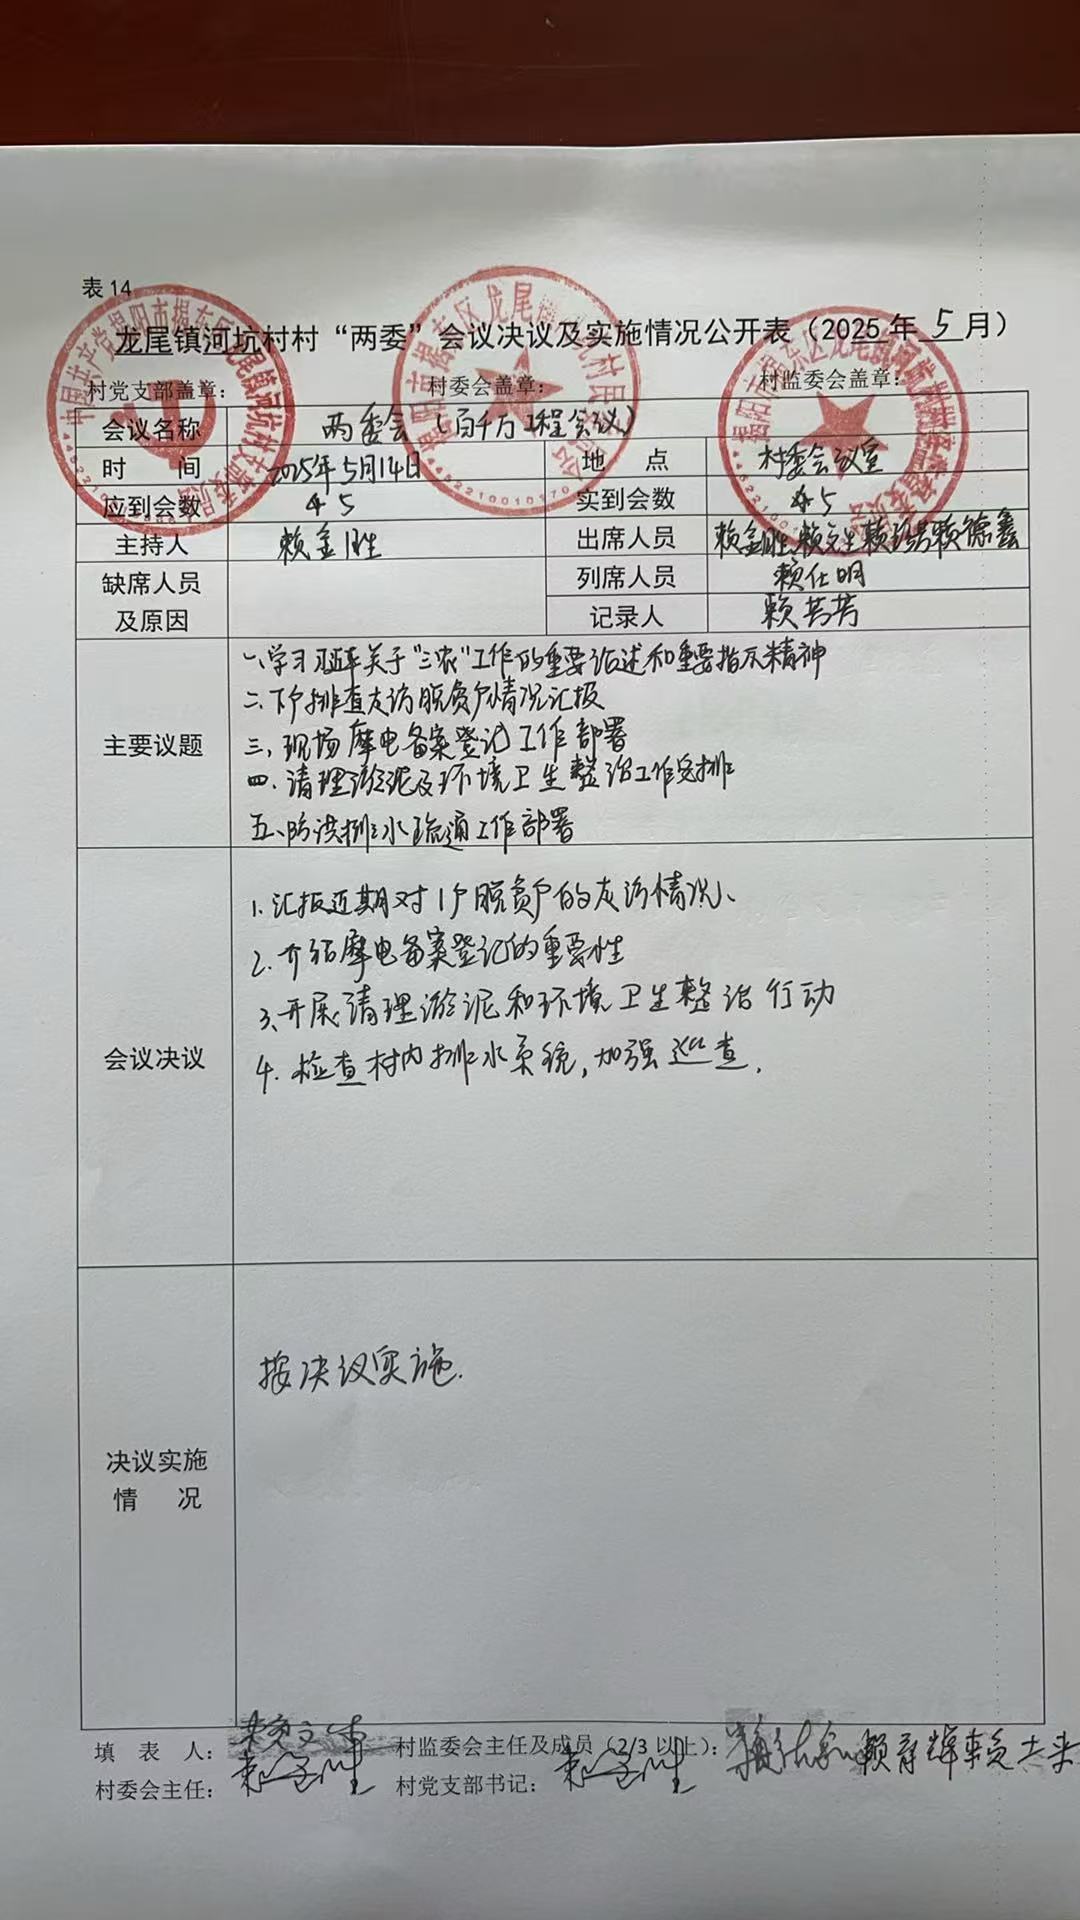 表 14
龙尾镇河坑村村“两委”会议决议及实施情况公开表（2025 年 5 月）
村党支部盖章： 村委会盖章： 村监委会盖章：
会议名称 两委会（百千万工程会议）
时 间 2025年5月14日 地 点 村委会议室
应到会数 5 实到会数 5
主持人 赖金胜 出席人员 赖金胜 赖文生 赖 赖德鑫
缺席人员及原因 列席人员 赖仕明
记录人 赖芳芳
主要议题
一、学习 关于“三农”工作的重要论述和重要指示精神
二、下户排查走访脱贫户情况汇报
三、现场摩电备案登记工作部署
四、清理淤泥及环境卫生整治工作安排
五、防洪排水疏通工作部署
会议决议
1. 汇报近期对1户脱贫户的走访情况、
2. 介绍摩电备案登记的重要性
3. 开展清理淤泥和环境卫生整治行动
4. 检查村内排水系统，加强巡查．
决议实施情 况
按决议实施．
填 表 人： 赖文 村监委会主任及成员（2/3 以上）： 赖
村委会主任： 村党支部书记：